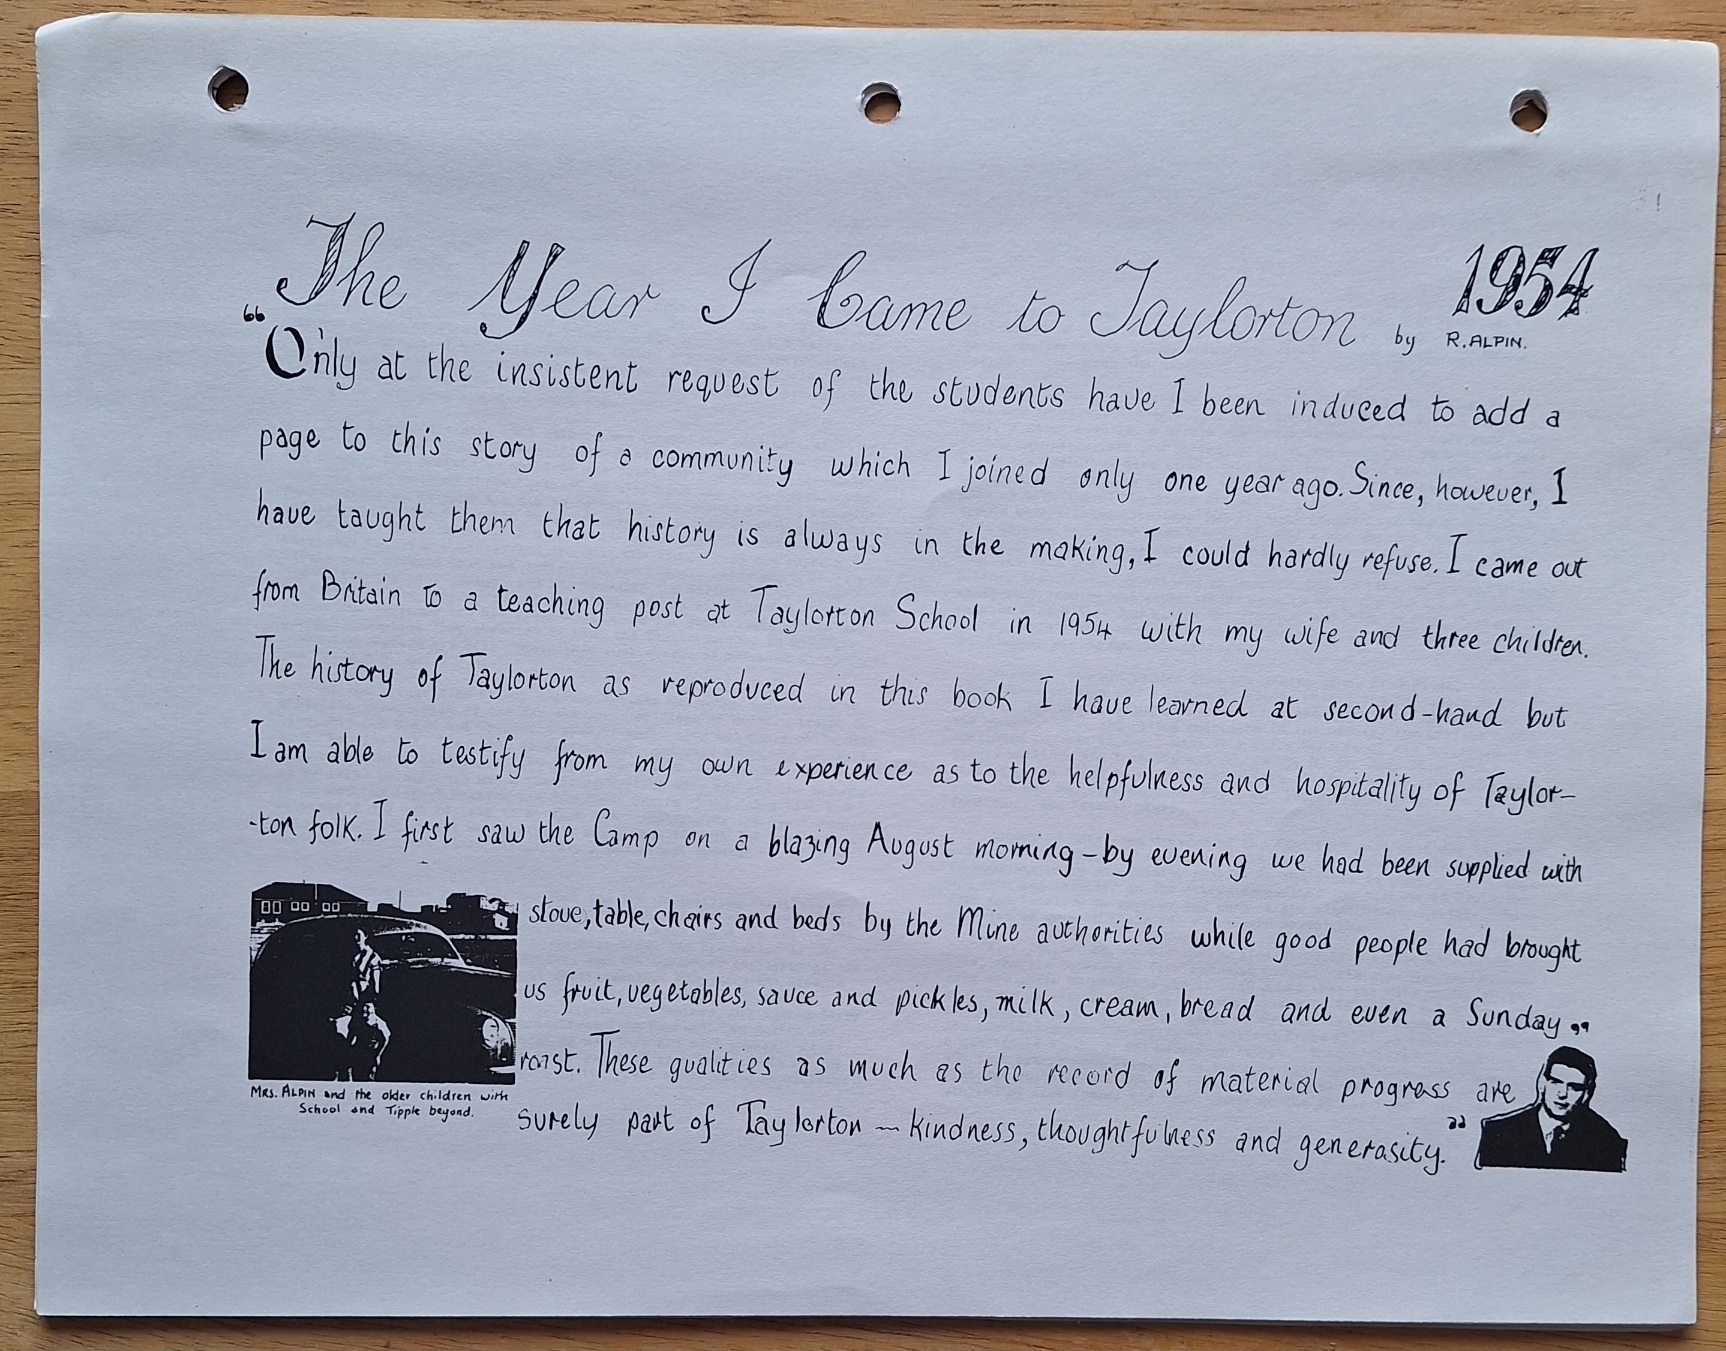 The Year I Came to Taylorton 1954
by R. ALPIN.
“Only at the insistent request of the students have I been induced to add a
page to this story of a community which I joined only one year ago. Since, however, I
have taught them that history is always in the making, I could hardly refuse. I came out
from Britain to a teaching post at Taylorton School in 1954 with my wife and three children.
The history of Taylorton as reproduced in this book I have learned at second-hand but
I am able to testify from my own experience as to the helpfulness and hospitality of Taylor-
-ton folk. I first saw the Camp on a blazing August morning – by evening we had been supplied with
stove, table, chairs and beds by the Mine authorities while good people had brought
us fruit, vegetables, sauce and pickles, milk, cream, bread and even a Sunday”
roast. These qualities as much as the record of material progress are
surely part of Taylorton — kindness, thoughtfulness and generosity.”
MRS. ALPIN and the older children with
School and Tipple beyond.